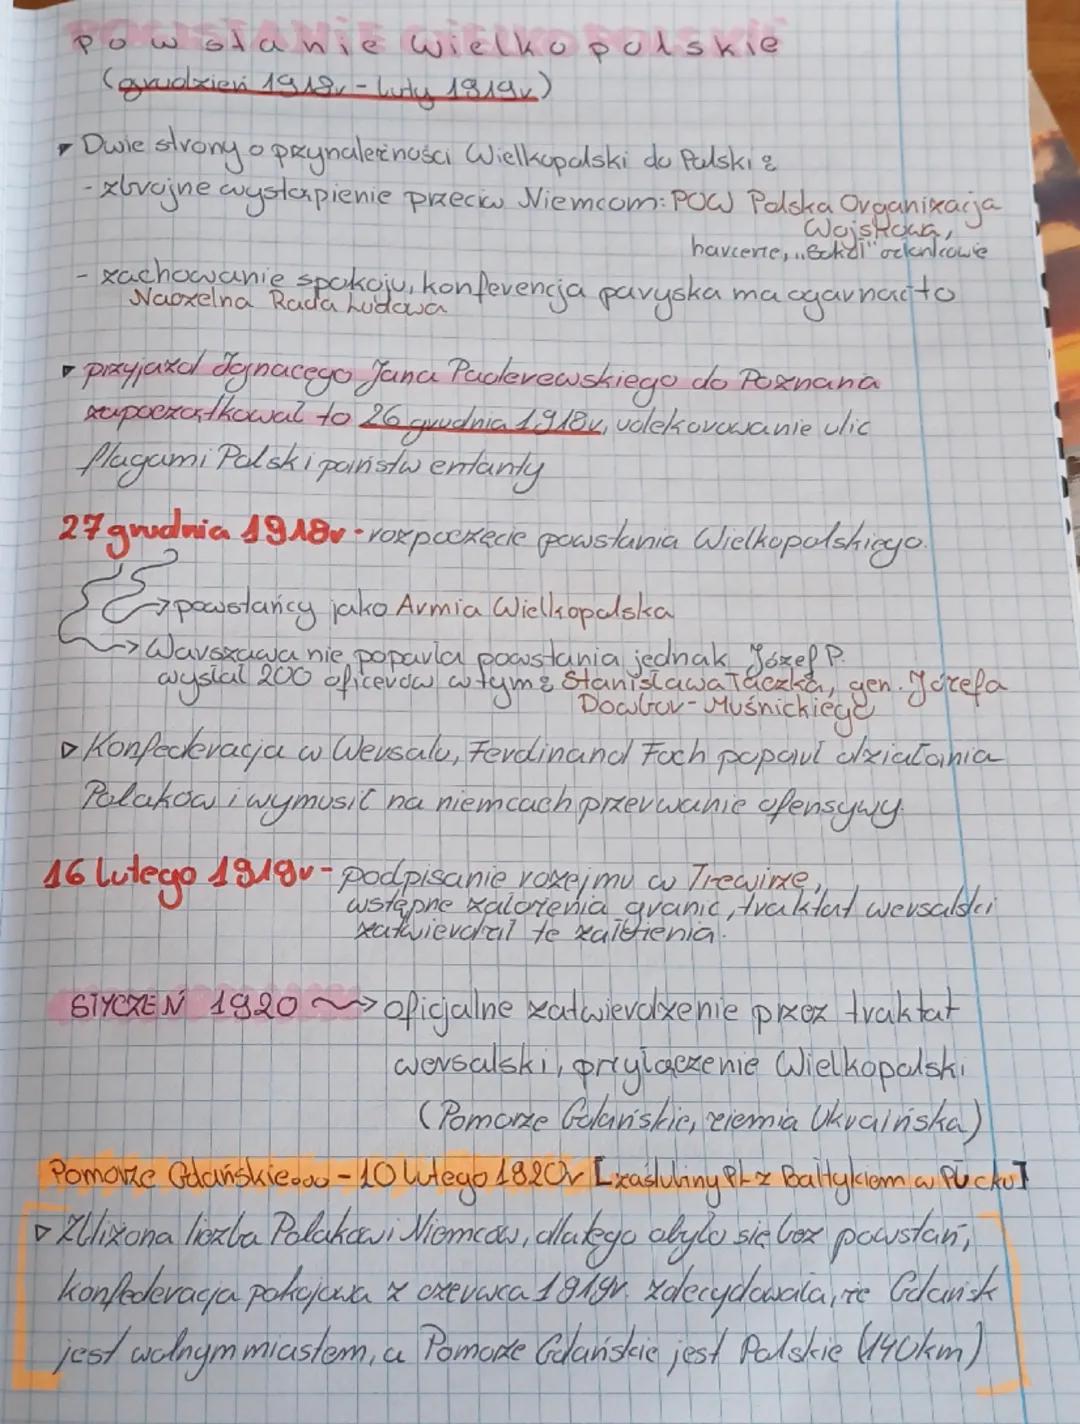 powstanie wielkopolskie
(grudzień 1918r - luty 1919r)
Dwie strony o przynależności Wielkopolski do Polski:
- zbrojne wystąpienie przeciw Niemcom: POW Polska Organizacja
Wojskowa,
harcerze, "Sokół" członkowie
- zachowanie spokoju, konferencja paryska ma ogarnąć to
Naczelna Rada Ludowa
przyjazd Ignacego Jana Paderewskiego do Poznania
zapoczątkował to 26 grudnia 1918r, udekorowanie ulic
flagami Polski i państw entanty
27 grudnia 1918r - rozpoczęcie powstania Wielkopolskiego.
→ powstańcy jako Armia Wielkopolska
→ Warszawa nie poparła powstania jednak Józef P.
wysłał 200 oficerów w tym: Stanisława Taczka, gen. Józefa
Dowbor-Muśnickiego
Konfederacja w Wersalu, Ferdinand Foch poparł działania
Polaków i wymusił na niemcach przerwanie ofensywy
16 lutego 1919r - podpisanie rozejmu w Trewirze,
wstępne założenia granic, traktat wersalski
zatwierdził te założenia.
STYCZEŃ 1920 → oficjalne zatwierdzenie przez traktat
wersalski, przyłączenie Wielkopolski
(Pomorze Gdańskie, ziemia Ukraińska)
Pomorze Gdańskie... - 10 lutego 1920r [zaślubiny PL z Bałtykiem w Pucku]
Zbliżona liczba Polaków i Niemców, dlatego obyło się bez powstań,
konfederacja pokojowa z czerwca 1919r. zdecydowała, że Gdańsk
jest wolnym miastem, a Pomorze Gdańskie jest Polskie (140km)